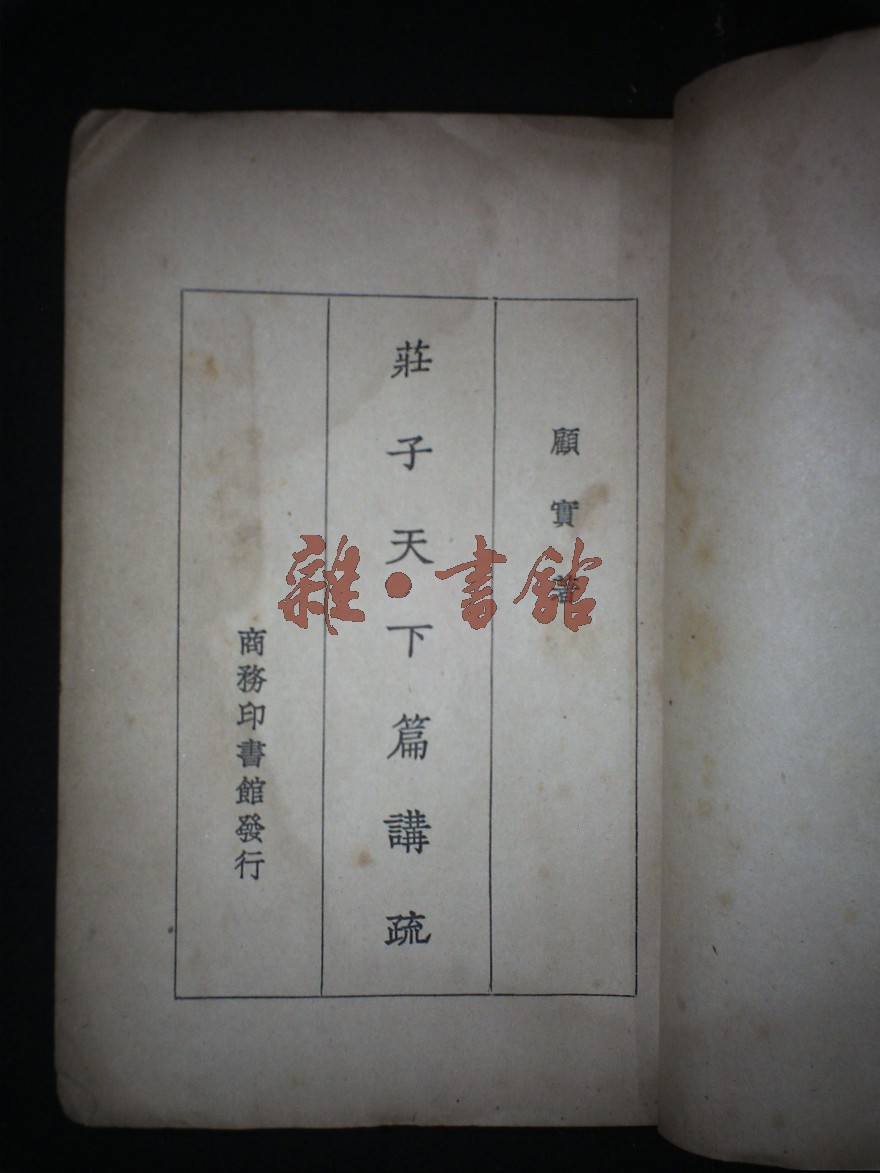 顧實著
莊子天下篇講疏
商務印書館發行
雜•書館